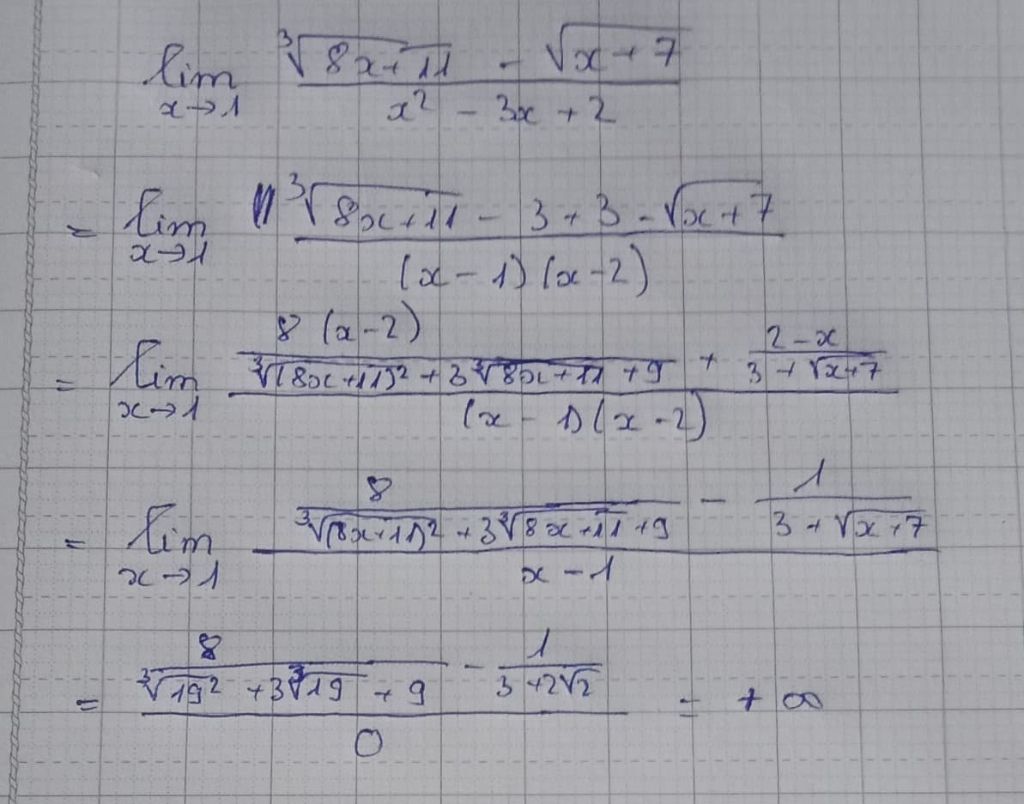 lim x→1 (∛(8x+11) - √(x+7)) / (x² - 3x + 2)
= lim x→1 (∛(8x+11) - 3 + 3 - √(x+7)) / ((x-1)(x-2))
= lim x→1 (8(x-2) / (∛(8x+11)² + 3∛(8x+11) + 9) + (2-x) / (3+√(x+7))) / ((x-1)(x-2))
= lim x→1 (8 / (∛(8x+11)² + 3∛(8x+11) + 9) - 1 / (3+√(x+7))) / (x-1)
= (8 / (∛19² + 3∛19 + 9) - 1 / (3+2√2)) / 0 = +∞